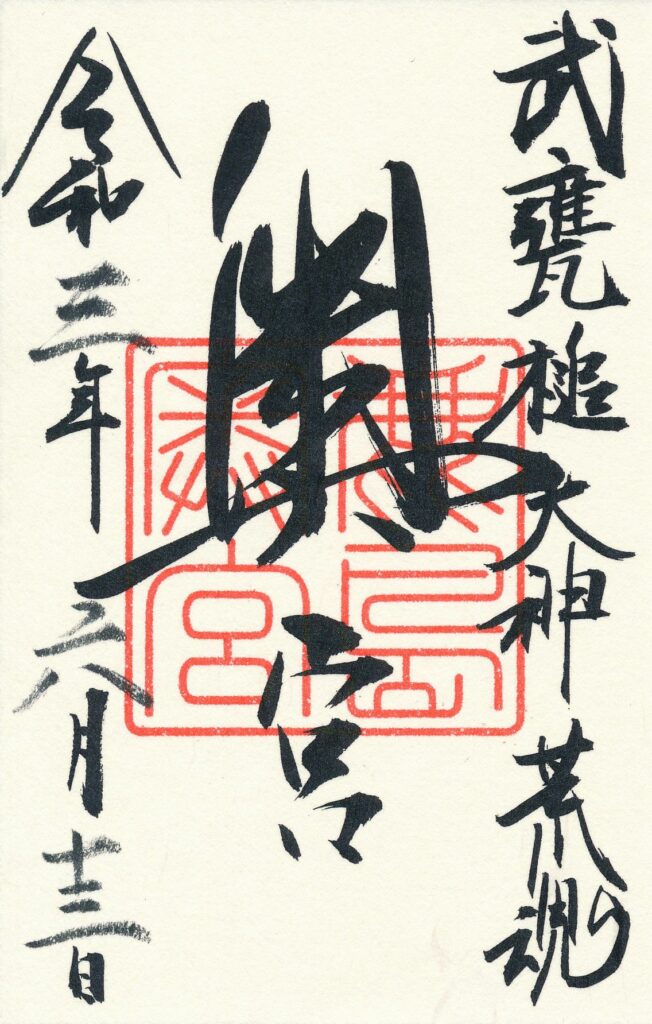 武甕槌大神 荒魂
奥宮
鹿島
奥宮
令和三年 六月十三日